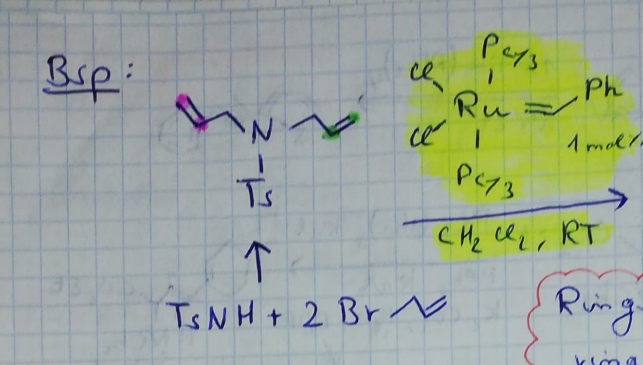 Bsp:
PCy3
Cl
Ru
Ph
Cl
1 mol%
PCy3
N
Ts
CH2Cl2, RT
TsNH + 2 Br
Ring-
ring